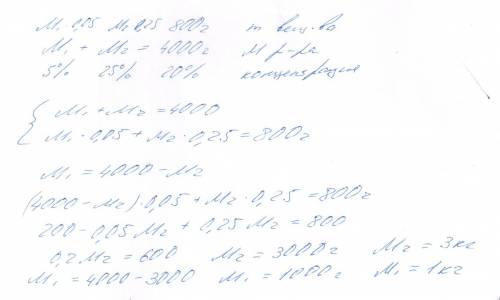 M₁·0,05 M₂ 0,25 800г m вещ-ва
M₁ + M₂ = 4000г M р-ра
5% 25% 20% концентрация
M₁ + M₂ = 4000
M₁·0,05 + M₂·0,25 = 800г
M₁ = 4000 - M₂
(4000 - M₂)·0,05 + M₂·0,25 = 800г
200 - 0,05M₂ + 0,25M₂ = 800
0,2M₂ = 600 M₂ = 3000г M₂ = 3кг
M₁ = 4000 - 3000 M₁ = 1000г M₁ = 1кг